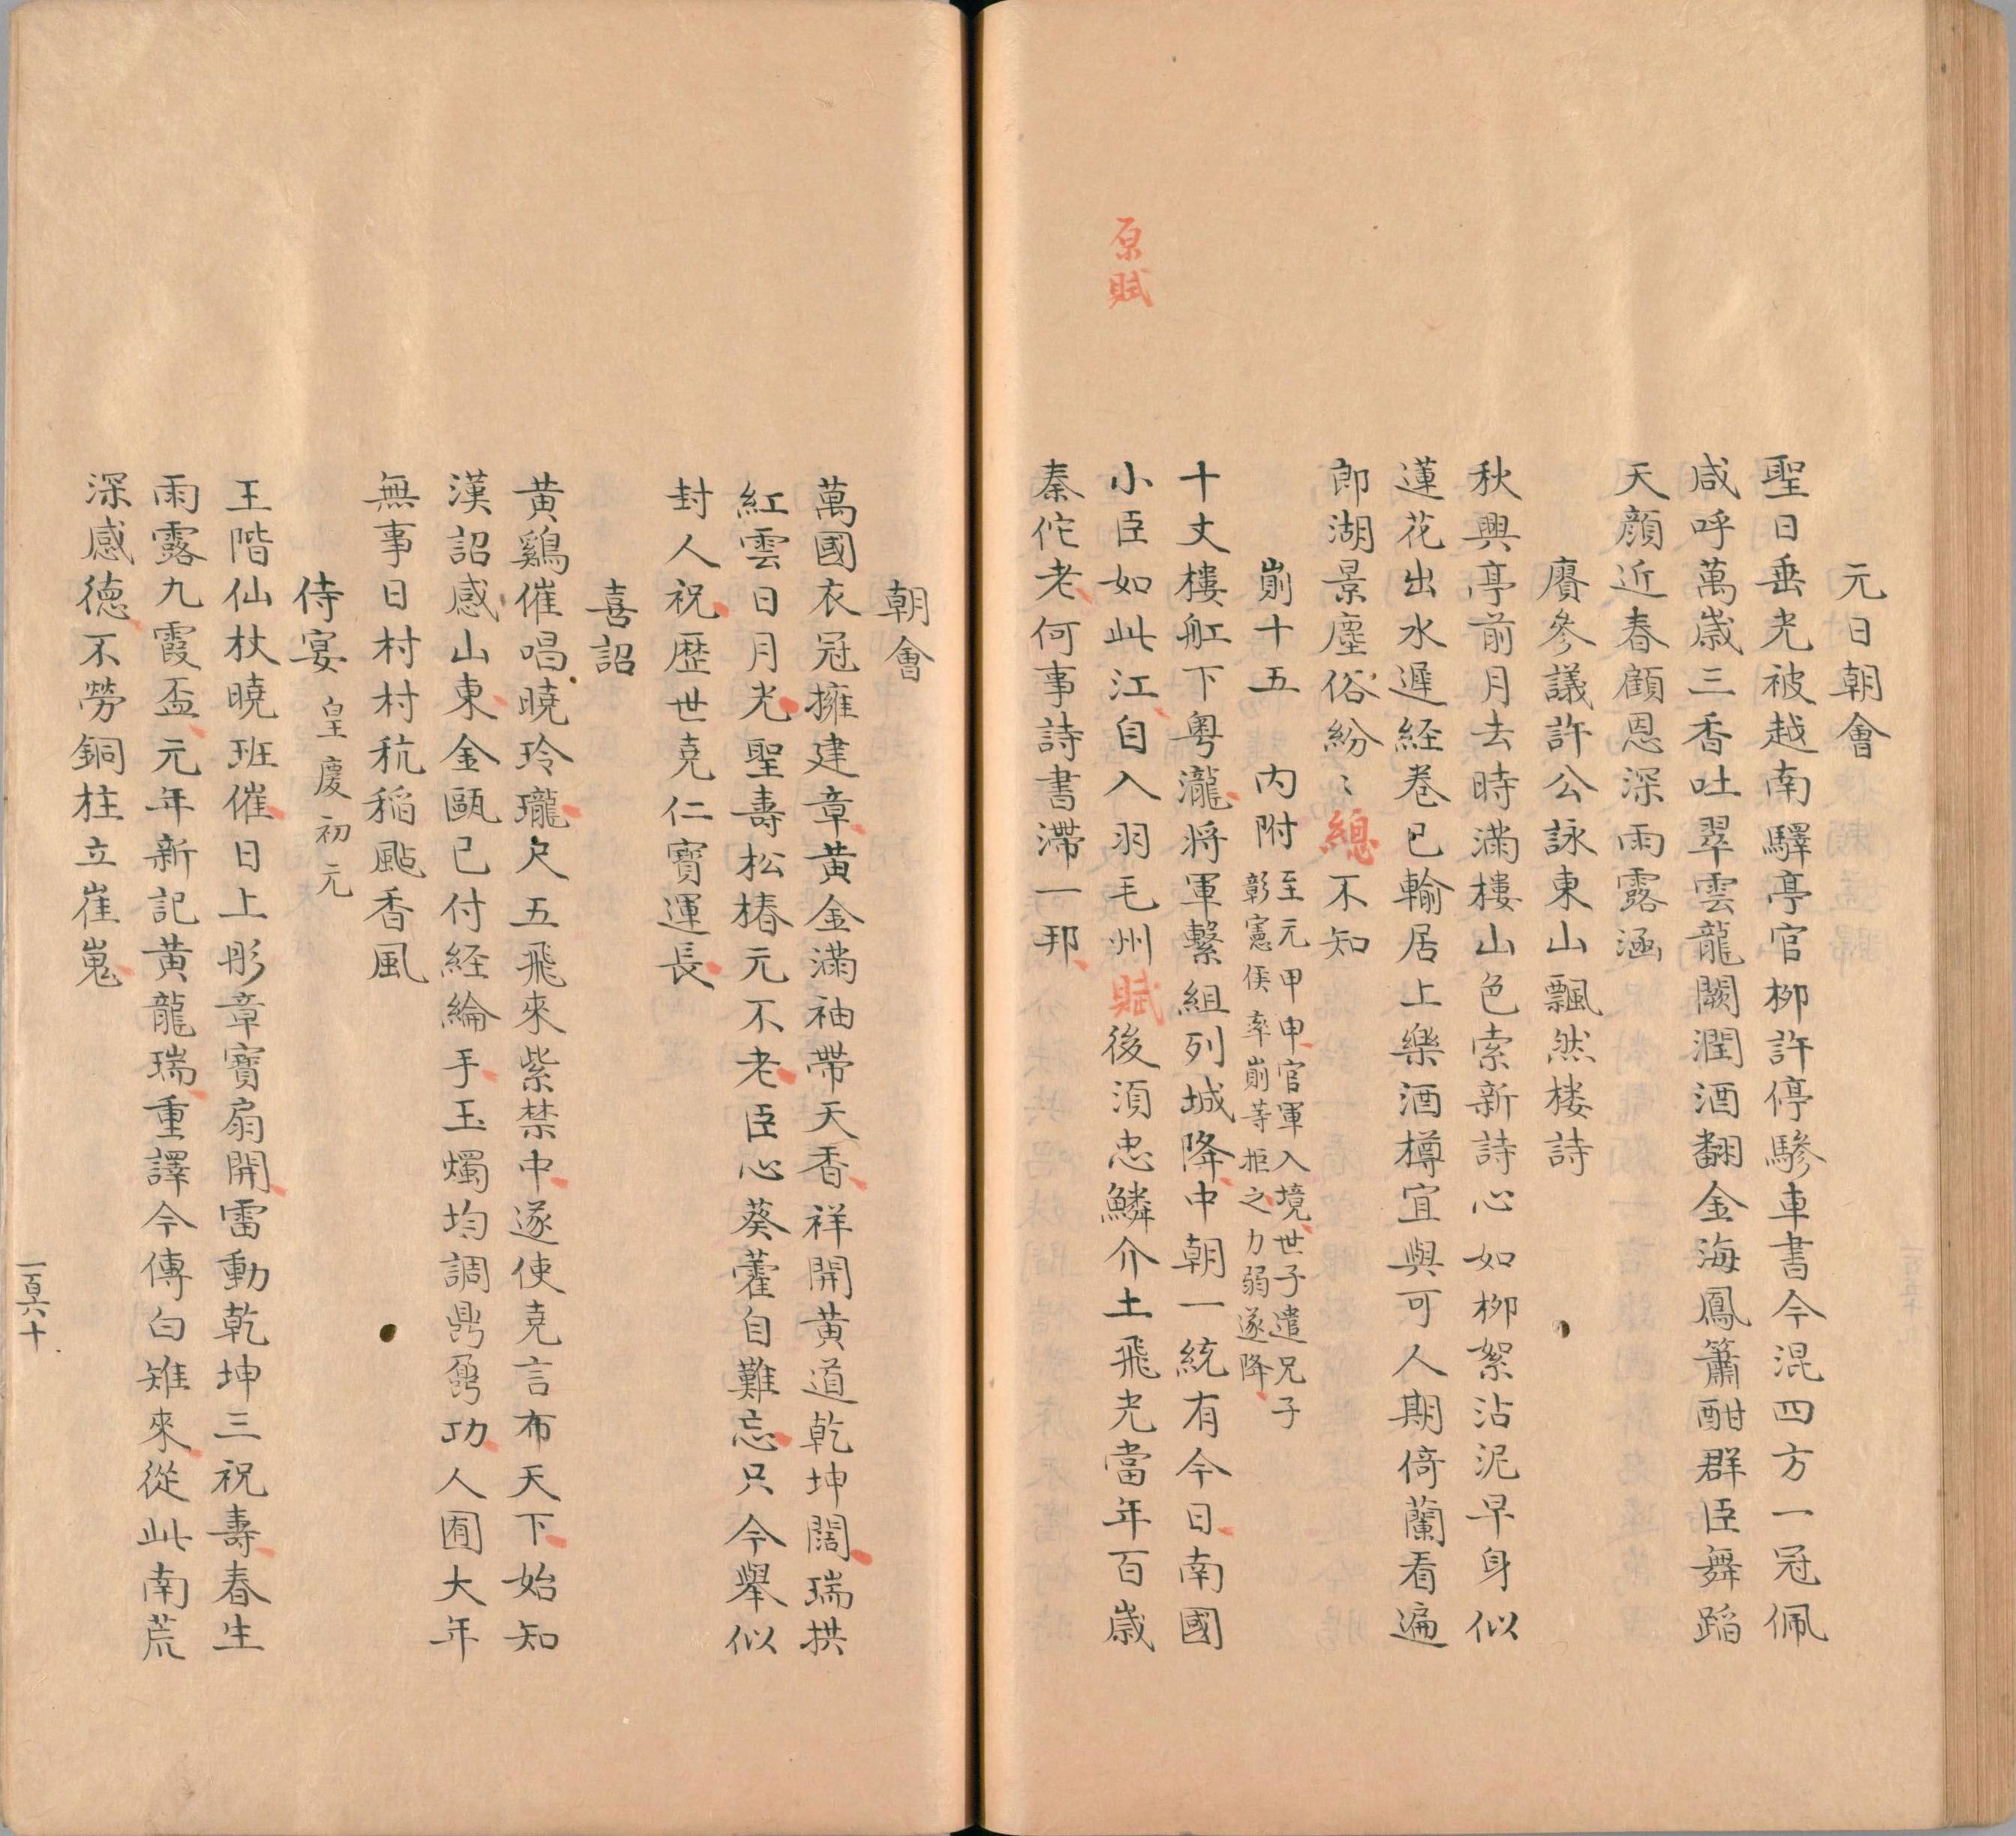 元日朝會
聖日垂光被越南驛亭官柳許停驂車書今混四方一冠佩
咸呼萬歲三香吐翠雲龍闕潤酒翻金海鳳簫酣群臣舞蹈
天顔近春顧恩深雨露涵
賡參議許公詠東山飄然楼詩
秋興亭前月去時滿樓山色索新詩心如柳絮沾泥早身似
蓮花出水遲経卷已輸居上樂酒樽宜與可人期倚蘭看遍
郎湖景塵俗紛〻總不知
崱十五 内附至元甲申官軍入境世子遣兄子
彰憲侯率崱等拒之力弱遂降
十丈樓舡下粤瀧將軍繫組列城降中朝一統有今日南國
小臣如此江自入羽毛州賦後湏忠鱗介土飛光當年百歲
秦佗老何事詩書滯一邦
原賦
朝會
萬國衣冠擁建章黄金滿袖帶天香祥開黄道乾坤闊瑞拱
紅雲日月光聖壽松椿元不老臣心葵藿自難忘只今舉似
封人祝歴世克仁寶運長
喜詔
黄鷄催唱曉玲瓏尺五飛來紫禁中遂使堯言布天下始知
漢詔感山東金甌已付経綸手玉燭均調鼎鼐功人囿大年
無事日村村秔稲颭香風
侍宴 皇慶初元
王階仙杖曉班催日上彤章寳扇開雷動乾坤三祝壽春生
雨露九霞盃元年新記黄龍瑞重譯今傳白雉來從此南荒
深感徳不勞銅柱立崔嵬
一百六十